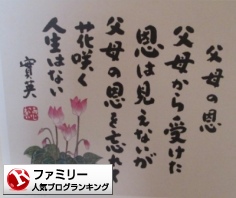 父母の恩
父母から受けた
恩は見えないが
父母の恩を忘れて
花咲く
人生はない
寳英
ファミリー
人気ブログランキング